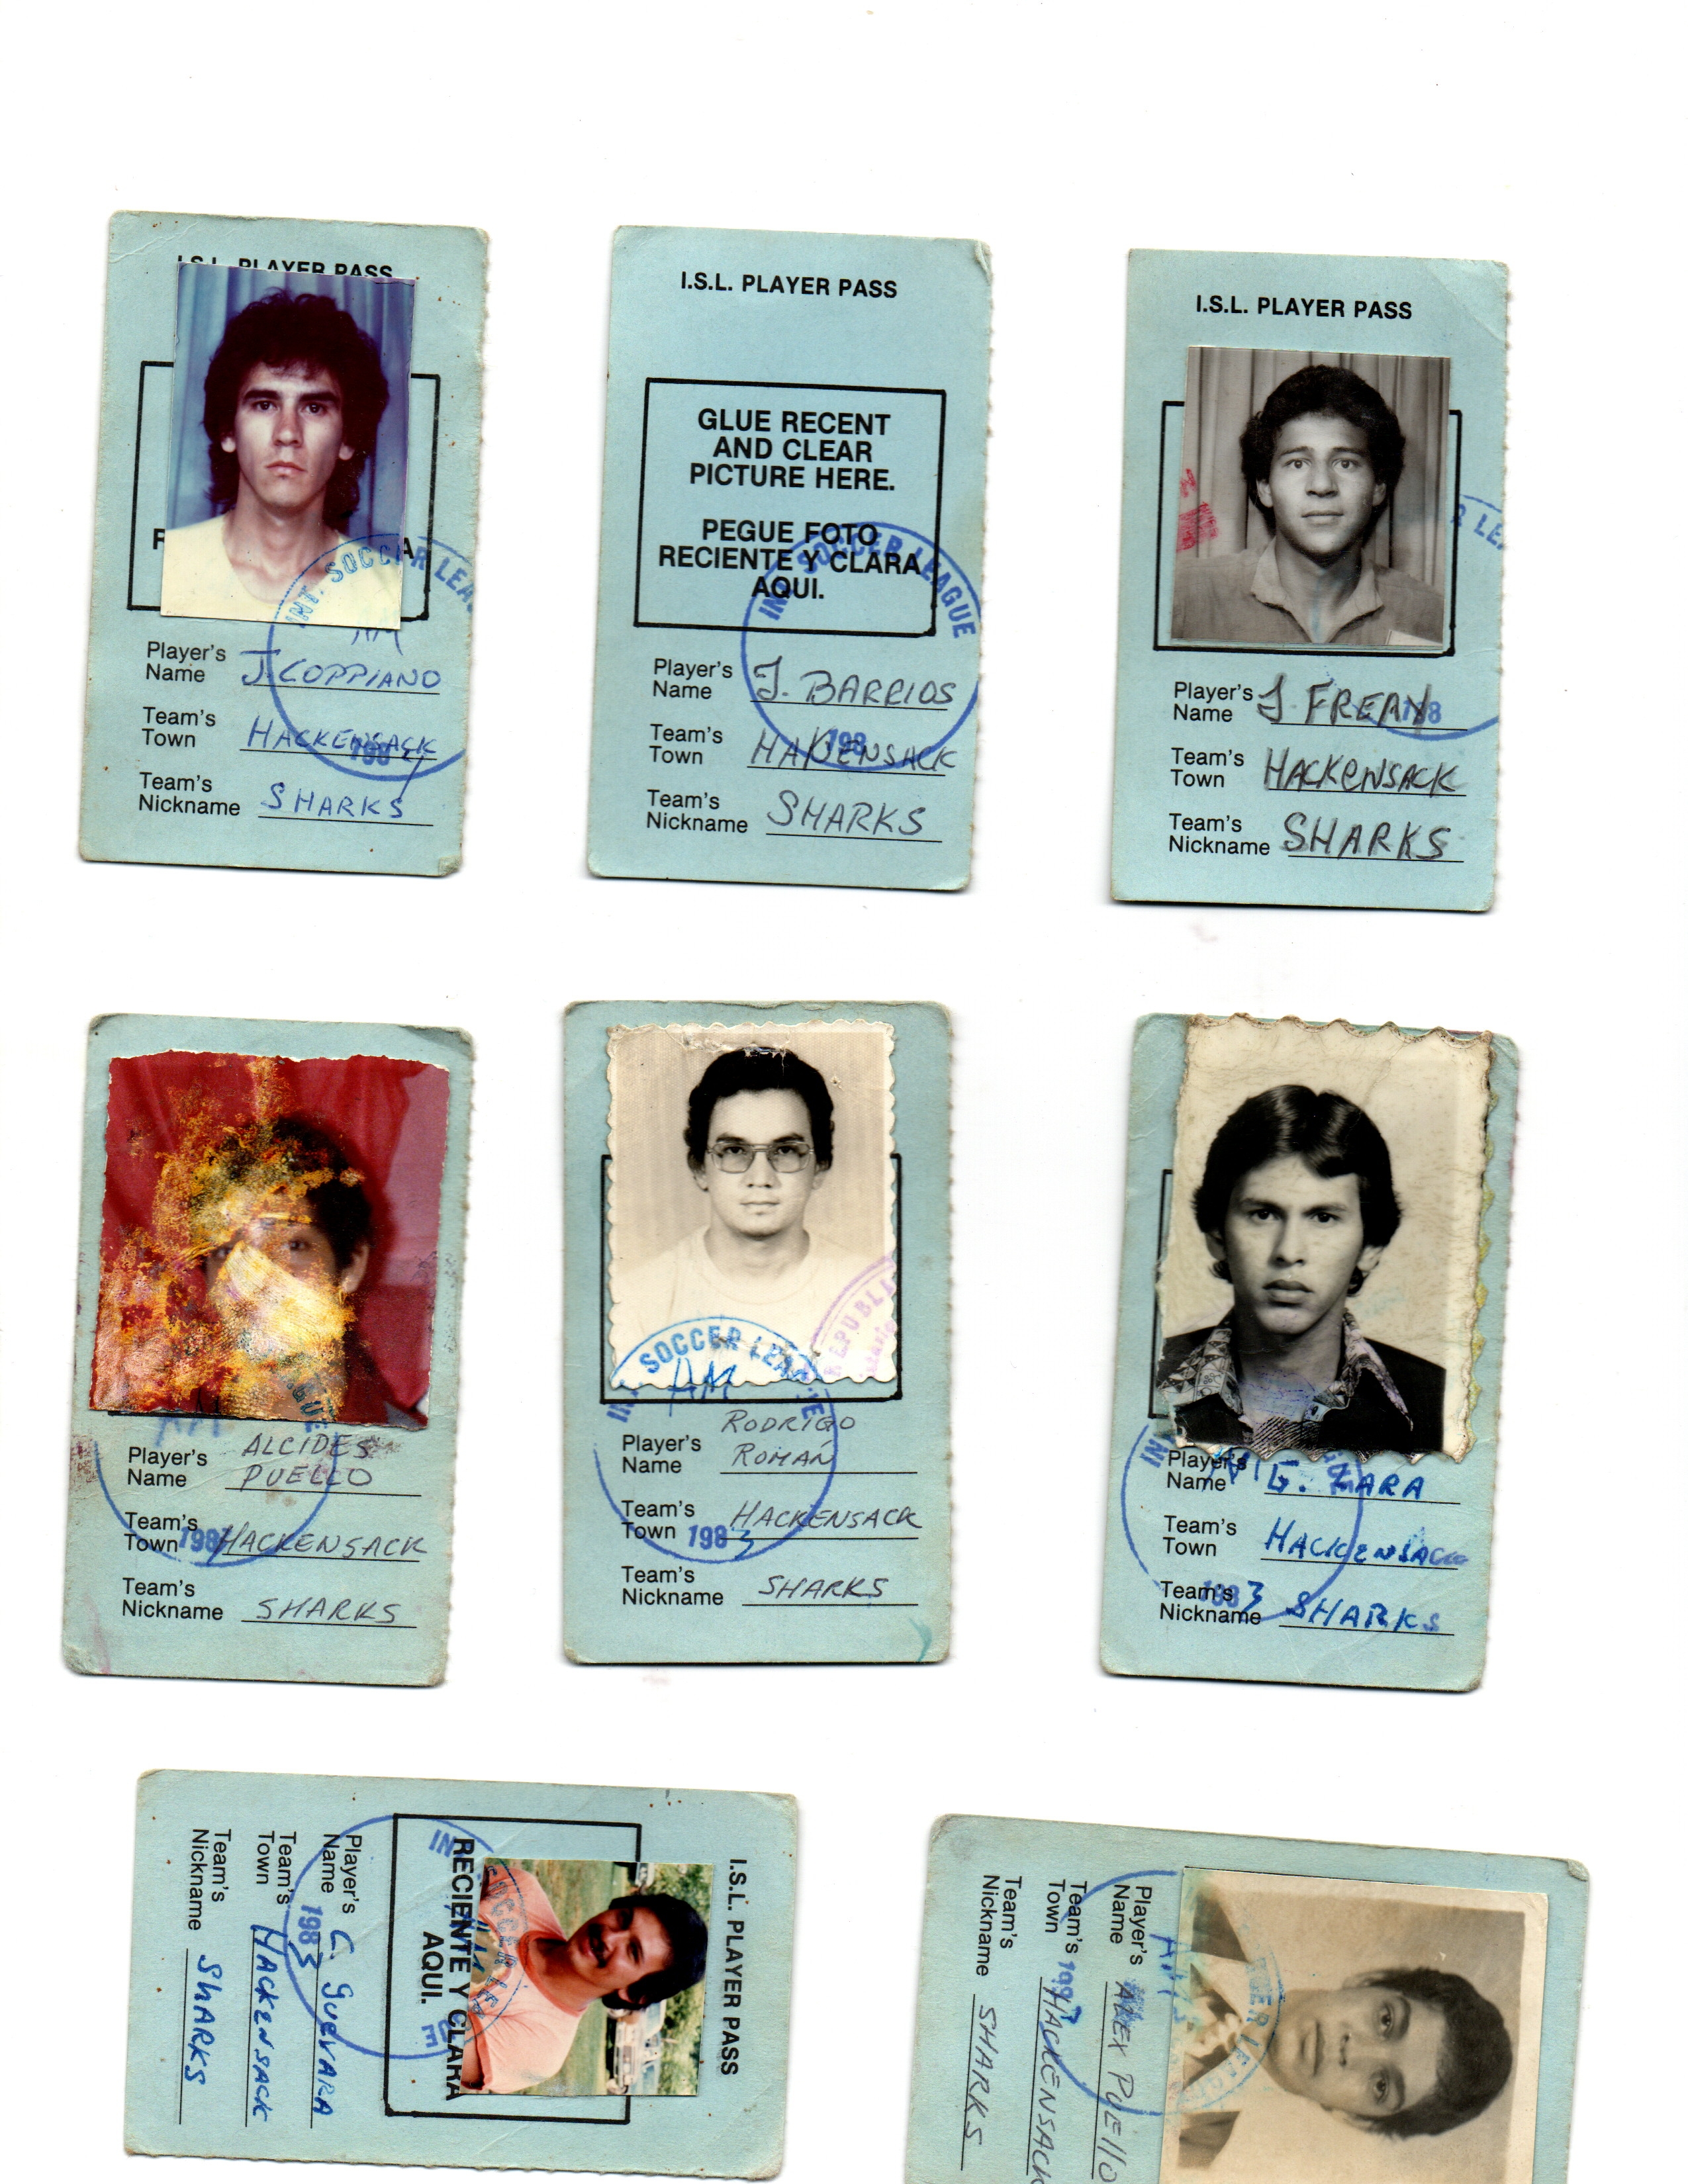 I.S.L. PLAYER PASS
INT. SOCCER LEAG
AM
Player's
Name J. COPPIANO
Team's
Town HACKENSACK
198
Team's
Nickname SHARKS
I.S.L. PLAYER PASS
GLUE RECENT
AND CLEAR
PICTURE HERE.
PEGUE FOTO
RECIENTE Y CLARA
AQUI.
INT. SOCCER LEAGUE
Player's
Name J. BARRIOS
Team's
Town
198
Team's
Nickname SHARKS
I.S.L. PLAYER PASS
R LE
Player's
Name J FREAY
198
Team's
Town HACKENSACK
Team's
Nickname SHARKS
AM
GUE
Player's
Name ALCIDES
PUELLO
Team's
Town HACKENSACK
198
Team's
Nickname SHARKS
REPUBLI
SOCCER LEAGUE
AM
Player's
Name RODRIGO
ROMÁN
Team's
Town HACKENSACK
1983
Team's
Nickname SHARKS
INT
Player's
Name G. LARA
Team's
Town HACKENSACK
1983
Team's
Nickname SHARKS
I.S.L. PLAYER PASS
RECIENTE Y CLARA
AQUI.
Player's
Name C. GUEVARA
1983
Team's
Town HACKENSACK
Team's
Nickname SHARKS
AM
Player's
Name ALEX PUEllO
Team's
Town HACKENSACK
Team's
Nickname SHARKS